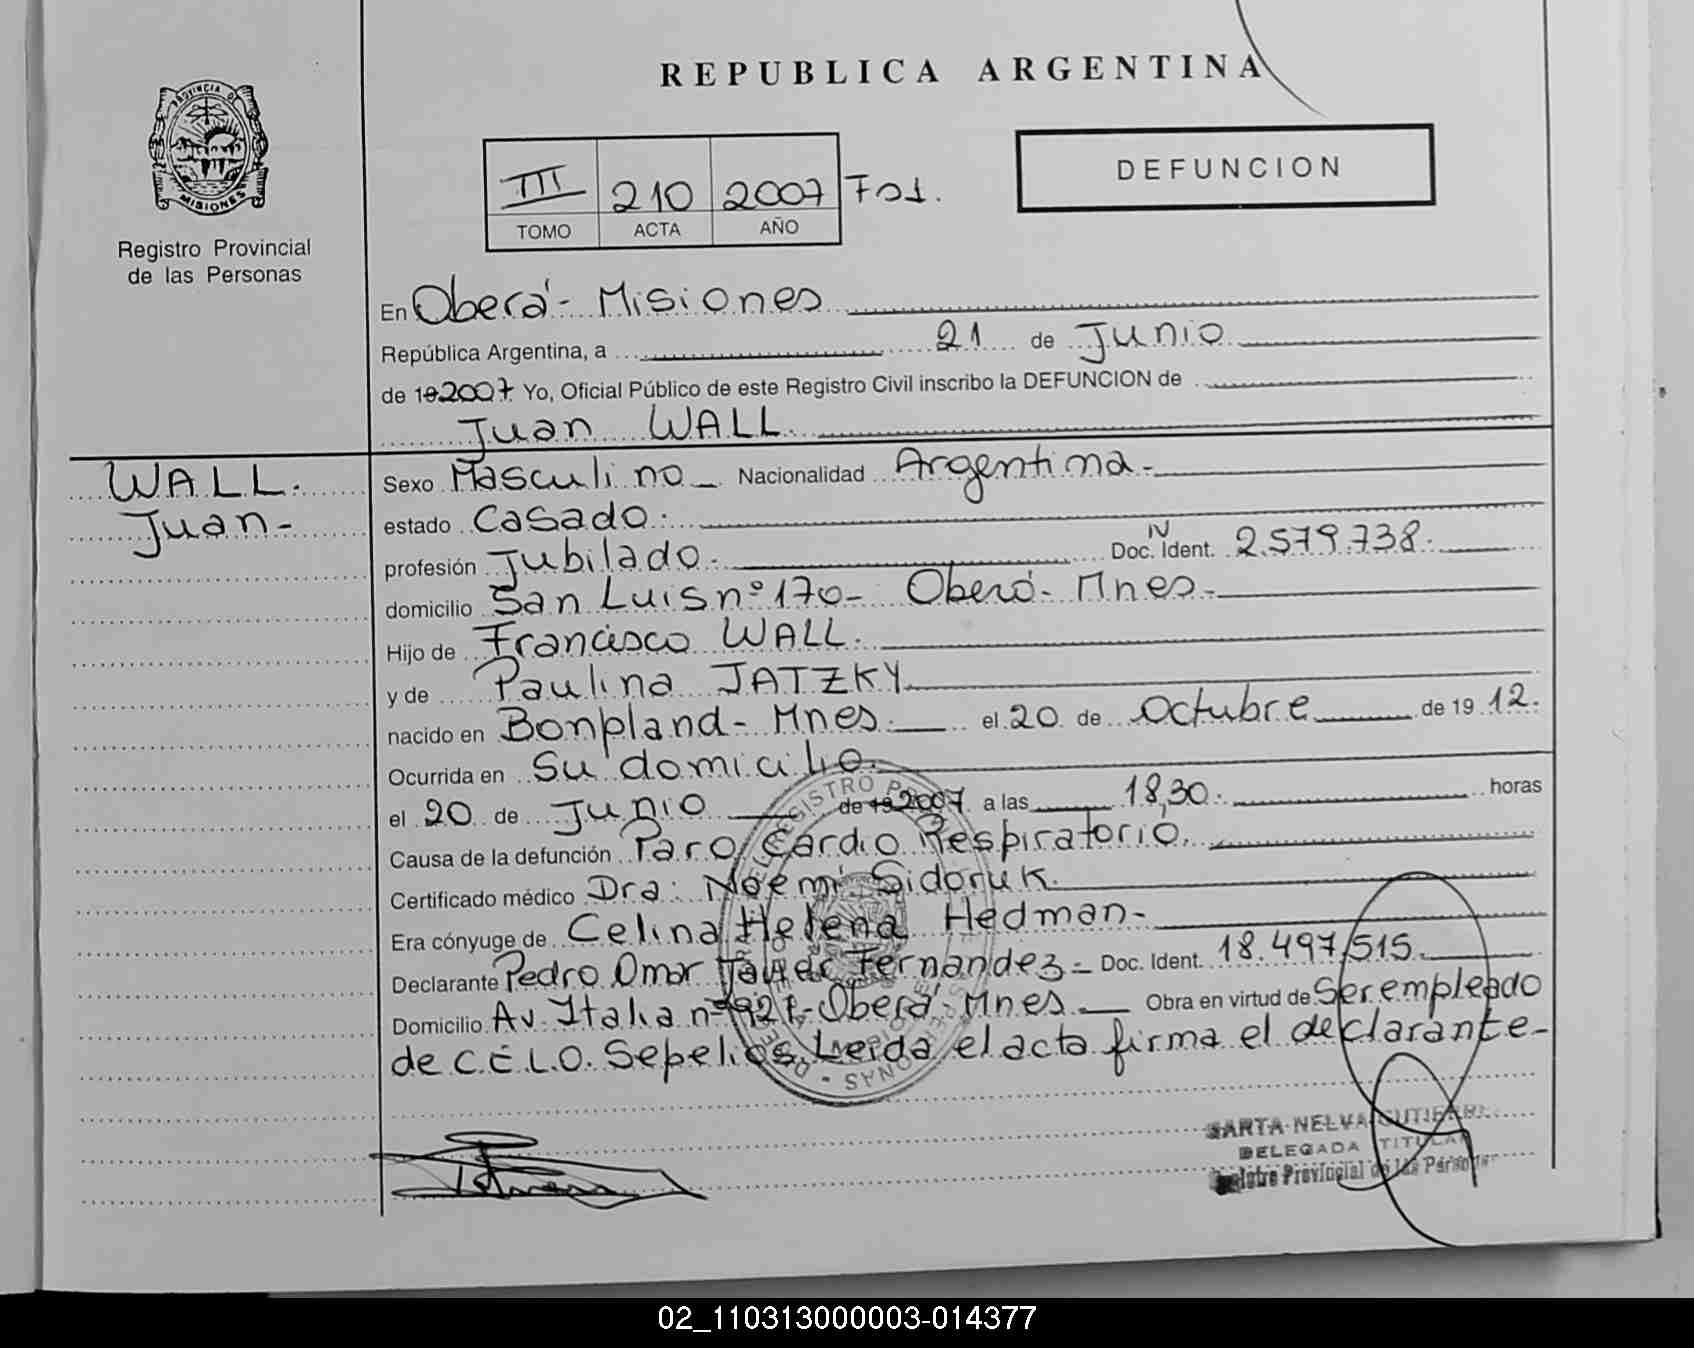 REPUBLICA ARGENTINA
PROVINCIA DE
MISIONES
Registro Provincial
de las Personas
III 210 2007 Fo1.
TOMO ACTA AÑO
DEFUNCION
En Oberá - Misiones
República Argentina, a 21 de Junio
de 192007 Yo, Oficial Público de este Registro Civil inscribo la DEFUNCION de
Juan WALL.
WALL.
Juan-
Sexo Masculino Nacionalidad Argentina-
estado Casado.
profesión Jubilado. Doc. N Ident. 2.579.738.
domicilio San Luis nº 170- Oberá- Mnes.
Hijo de Francisco WALL.
y de Paulina JATZKY
nacido en Bonpland- Mnes. el 20 de Octubre de 19 12.
Ocurrida en Su domicilio.
el 20 de Junio de 192007 a las 18,30. horas
Causa de la defunción Paro Cardio Respiratorio.
Certificado médico Dra: Noemí Sidoruk.
Era cónyuge de Celina Helena Hedman-
Declarante Pedro Omar Javier Fernandez- Doc. Ident. 18.497,515.
Domicilio Av. Italia nº Oberá- Mnes. Obra en virtud de Ser empleado
de C.E.L.O. Sepelios, Leida el acta firma el declarante-
REGISTRO
NELVA GUTIERR
DELEGADA TITULAR
Provincial de las Personas
02_110313000003-014377